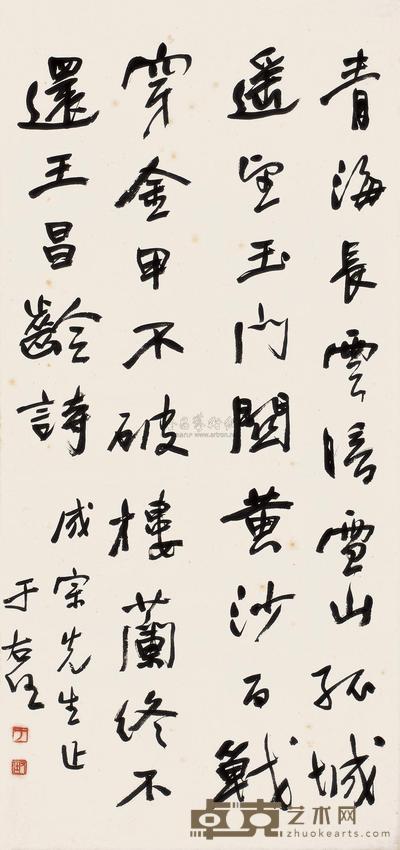 青海長雲暗雪山孤城
遥望玉門關黄沙百戰
穿金甲不破樓蘭終不
還王昌齡詩
成宗先生正
于右任
卓克艺术网
zhuokearts.com